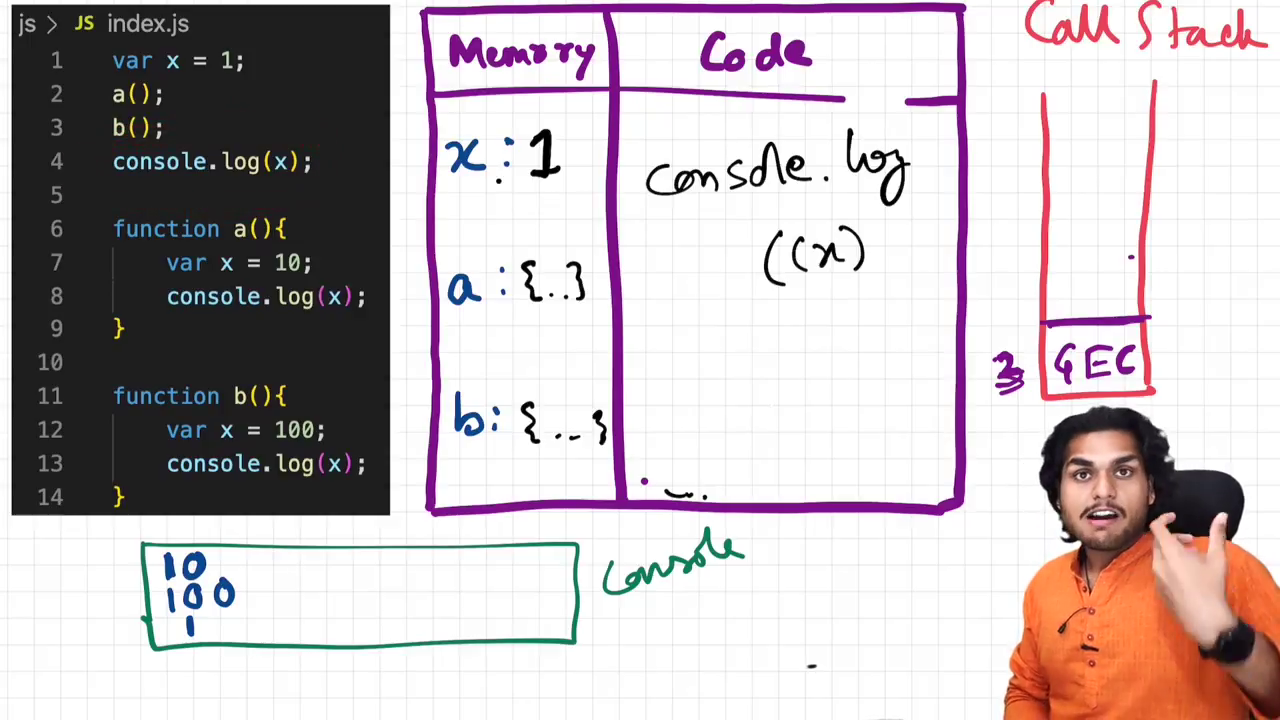 js > JS index.js
1 var x = 1;
2 a();
3 b();
4 console.log(x);
5
6 function a(){
7 var x = 10;
8 console.log(x);
9 }
10
11 function b(){
12 var x = 100;
13 console.log(x);
14 }
Memory Code
x : 1
a : {..}
b : {...}
console.log
((x)
Call Stack
GEC
10
100
1
Console